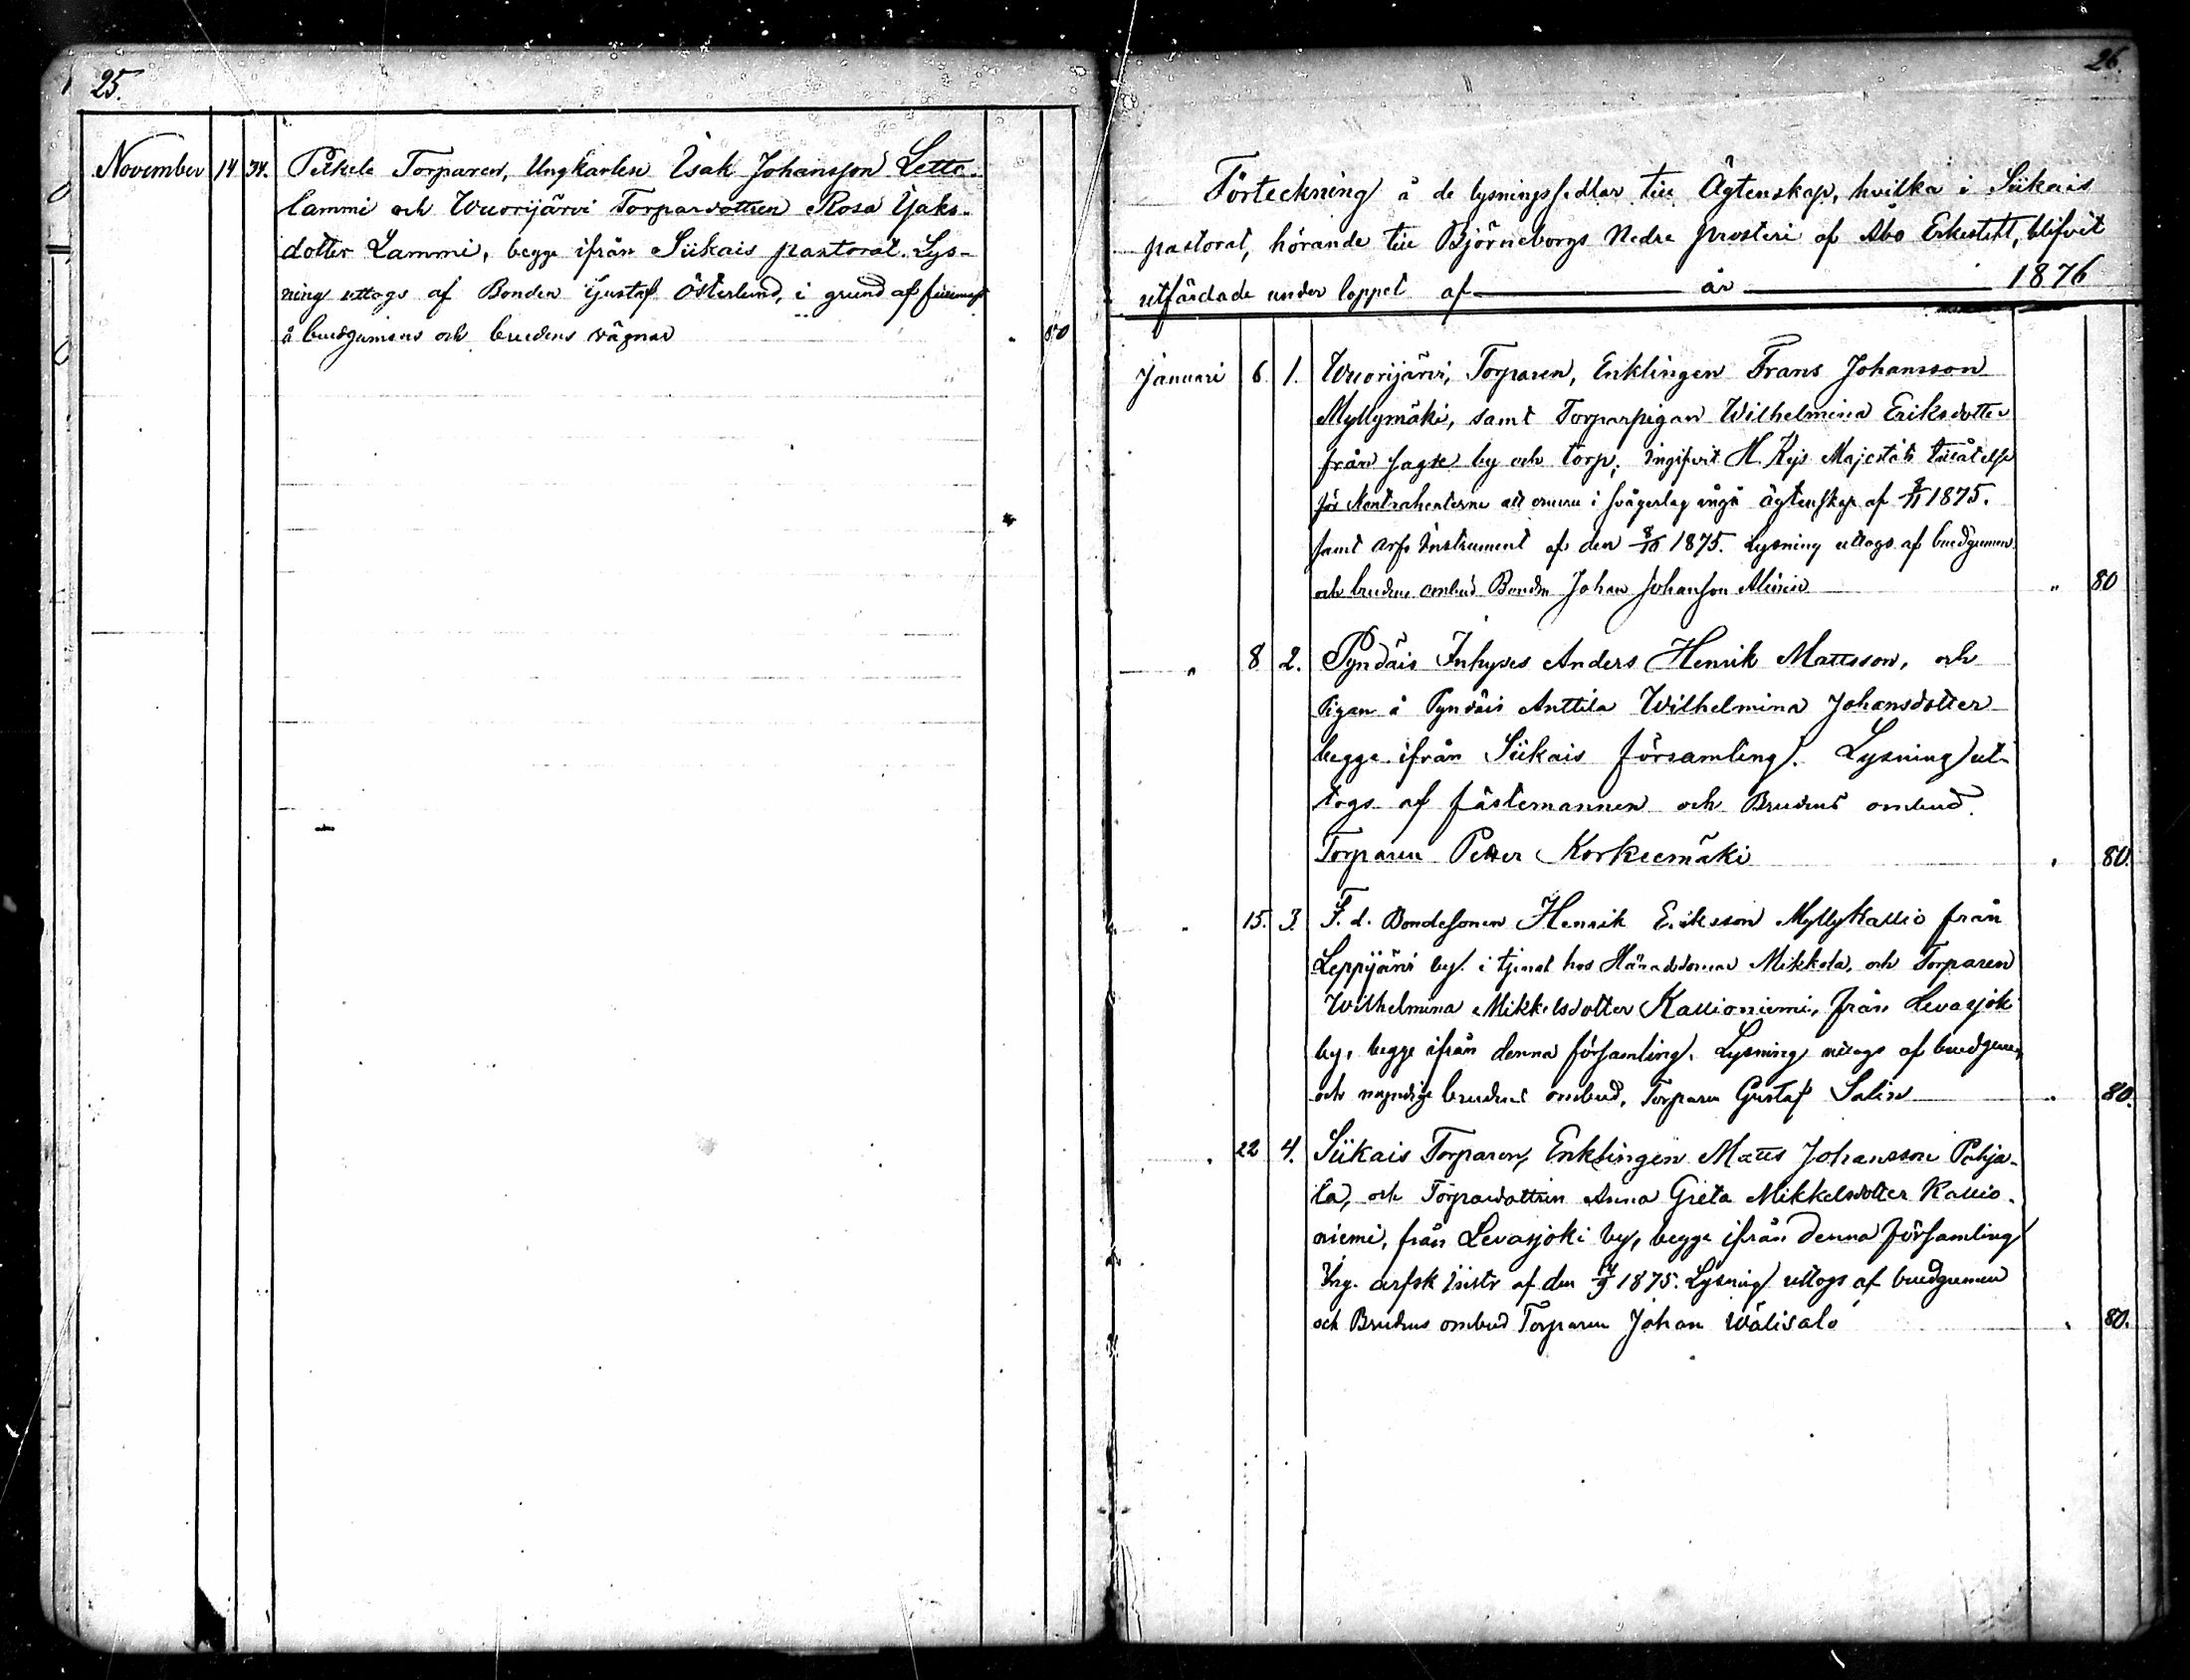 25.
November 14 34. Pitkele Torparen, Ungkarlen Isak Johansson Lette-
lammi och Wuorijärvi Torparedottren Rosa Isaks-
dotter Lammi, begge ifrån Siikais pastorat. Lys-
ning uttogs af Bonden Gustaf Österlund, i grund af
å brudgumens och brudens vägnar " 80
26.
Förteckning å de lysningssedlar till Ägtenskap, hvilka i Siikais
pastorat, hörande till Björneborgs Nedre prosteri af Åbo Erkestift, blifvit
utfärdade under loppet af år 1876
Januari 6 1. Wuorijärvi, Torparen, Enklingen Frans Johansson
Myllymäki, samt Torparpigan Wilhelmina Eriksdotter
från sagde by och torp, ingifvit H. Kejs Majestäts tillåtelse
för Kontrahenterne att i svågerlag ingå ägtenskap af 1875.
samt arfs Instrument af den 8/10 1875. Lysning uttogs af brudgumen
och brudens ombud Bonden Johan Johansson " 80
" 8 2. Pyndäis Inhyses Anders Henrik Mattsson, och
Pigan å Pyndäis Anttila Wilhelmina Johansdotter
begge ifrån Siikais församling. Lysning ut-
togs af fästemannen och Brudens ombud
Torparen Petter Korkeemäki " 80.
" 15. 3. F. d. Bondesonen Henrik Eriksson Myllykallio från
Leppijärvi by i tjenst hos Häradsdomar Mikkola, och Torparen
Wilhelmina Mikkelsdotter Kallioniemi, från Levasjoki
by, begge ifrån denna församling. Lysning uttogs af brudgumen
och myndige brudens ombud, Torparen Gustaf Salin " 80.
" 22 4. Siikais Torparen, Enklingen Matts Johansson Pohja-
la, och Torparedottren Anna Greta Mikkelsdotter Kallio-
niemi, från Levasjoki by, begge ifrån denna församling
Ing. arfsk instr af den 14/9 1875. Lysning uttogs af brudgumen
och Brudens ombud Torparen Johan Wälisalo " 80.